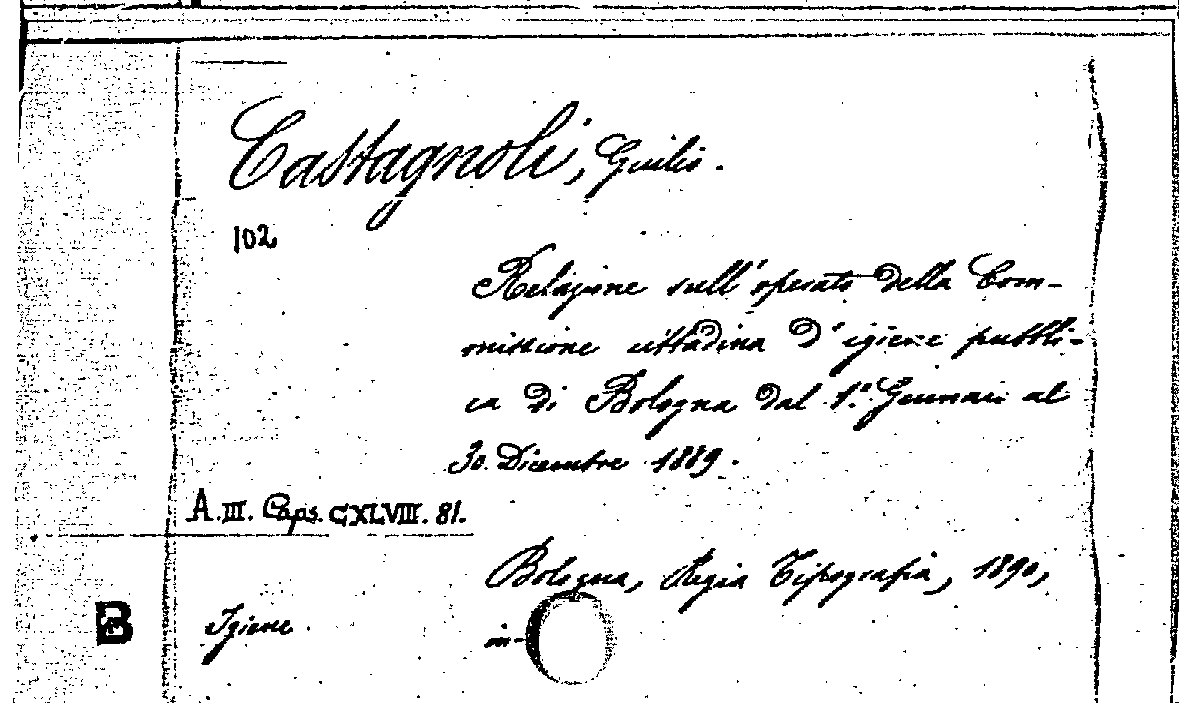 Castagnoli, Giulio.
102
Relazione sull'operato della Com-
missione cittadina d'igiene pubbli-
ca di Bologna dal 1.º Gennaio al
30 Dicembre 1889.
A.III. Caps. CXLVIII. 81.
Bologna, Regia Tipografia, 1890,
B Igiene in-